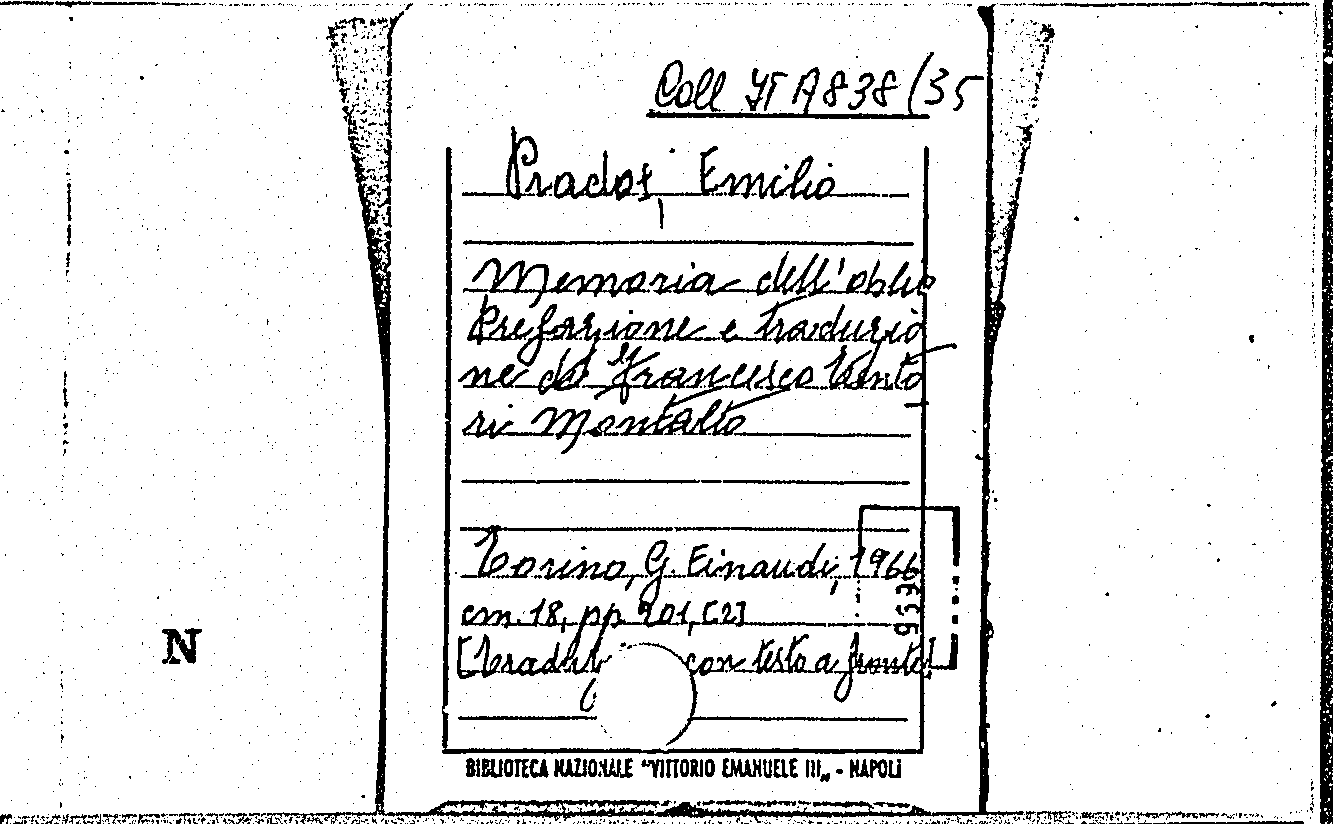 Coll IT A 838/35
Prados, Emilio
Memoria dell'oblio
Prefazione e traduzio
ne di Francesco Tento
ri Montalto
Torino, G. Einaudi, 1966
cm. 18, pp. 201, [2]
con testo a fronte]
N
BIBLIOTECA NAZIONALE "VITTORIO EMANUELE III„ - NAPOLI